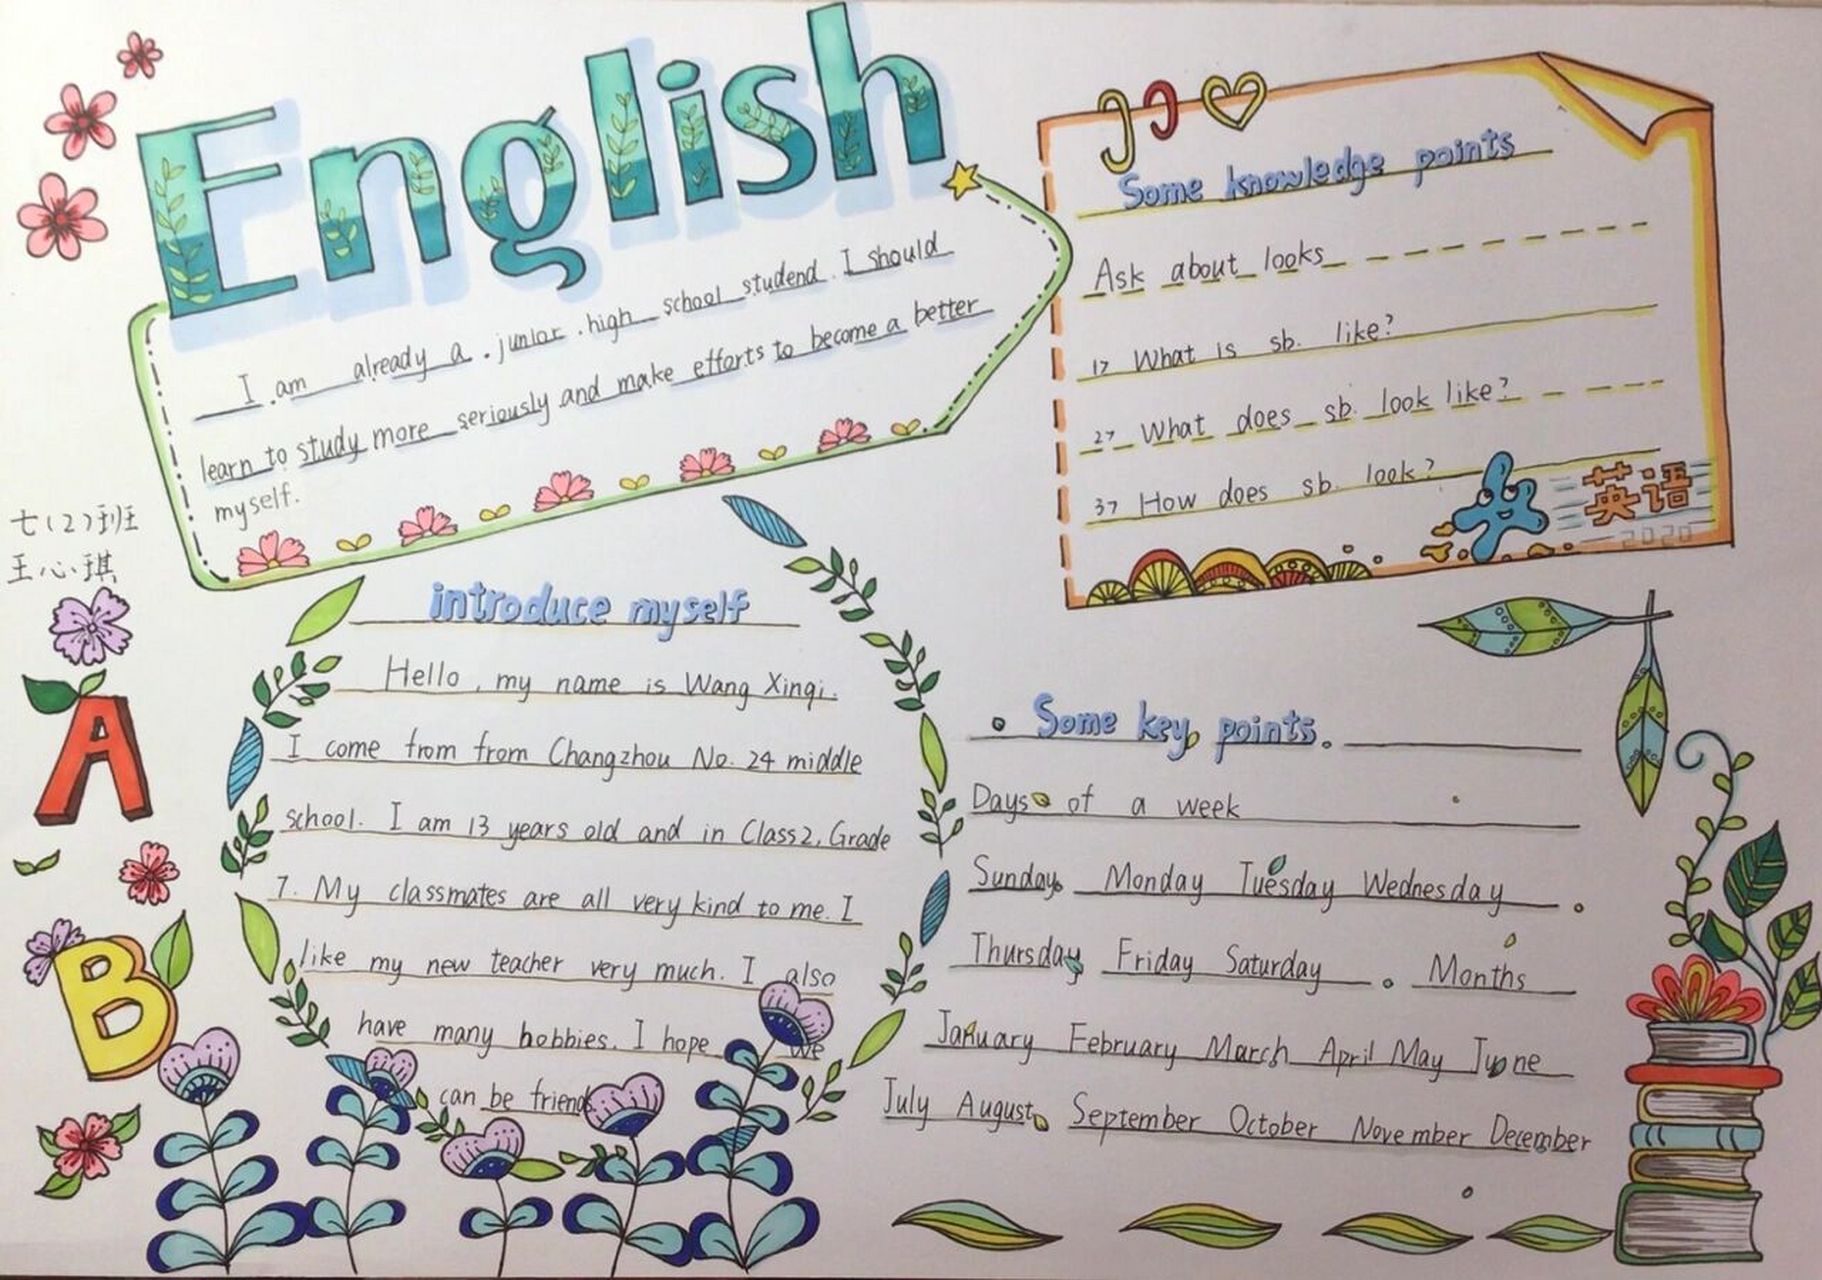 English
I am already a junior high school studend. I should
learn to study more seriously and make efforts to become a better
myself.
七(2)班
王心琪
Some knowledge points
Ask about looks
1> What is sb. like?
2> What does sb. look like?
3> How does sb. look?
英语
2020
introduce myself
Hello, my name is Wang Xinqi.
I come from from Changzhou No. 24 middle
school. I am 13 years old and in Class2, Grade
7. My classmates are all very kind to me. I
like my new teacher very much. I also
have many hobbies. I hope we
can be friends
A
B
Some key points.
Days of a week
Sunday Monday Tuesday Wednesday
Thursday Friday Saturday. Months
January February March April May June
July August September October November December